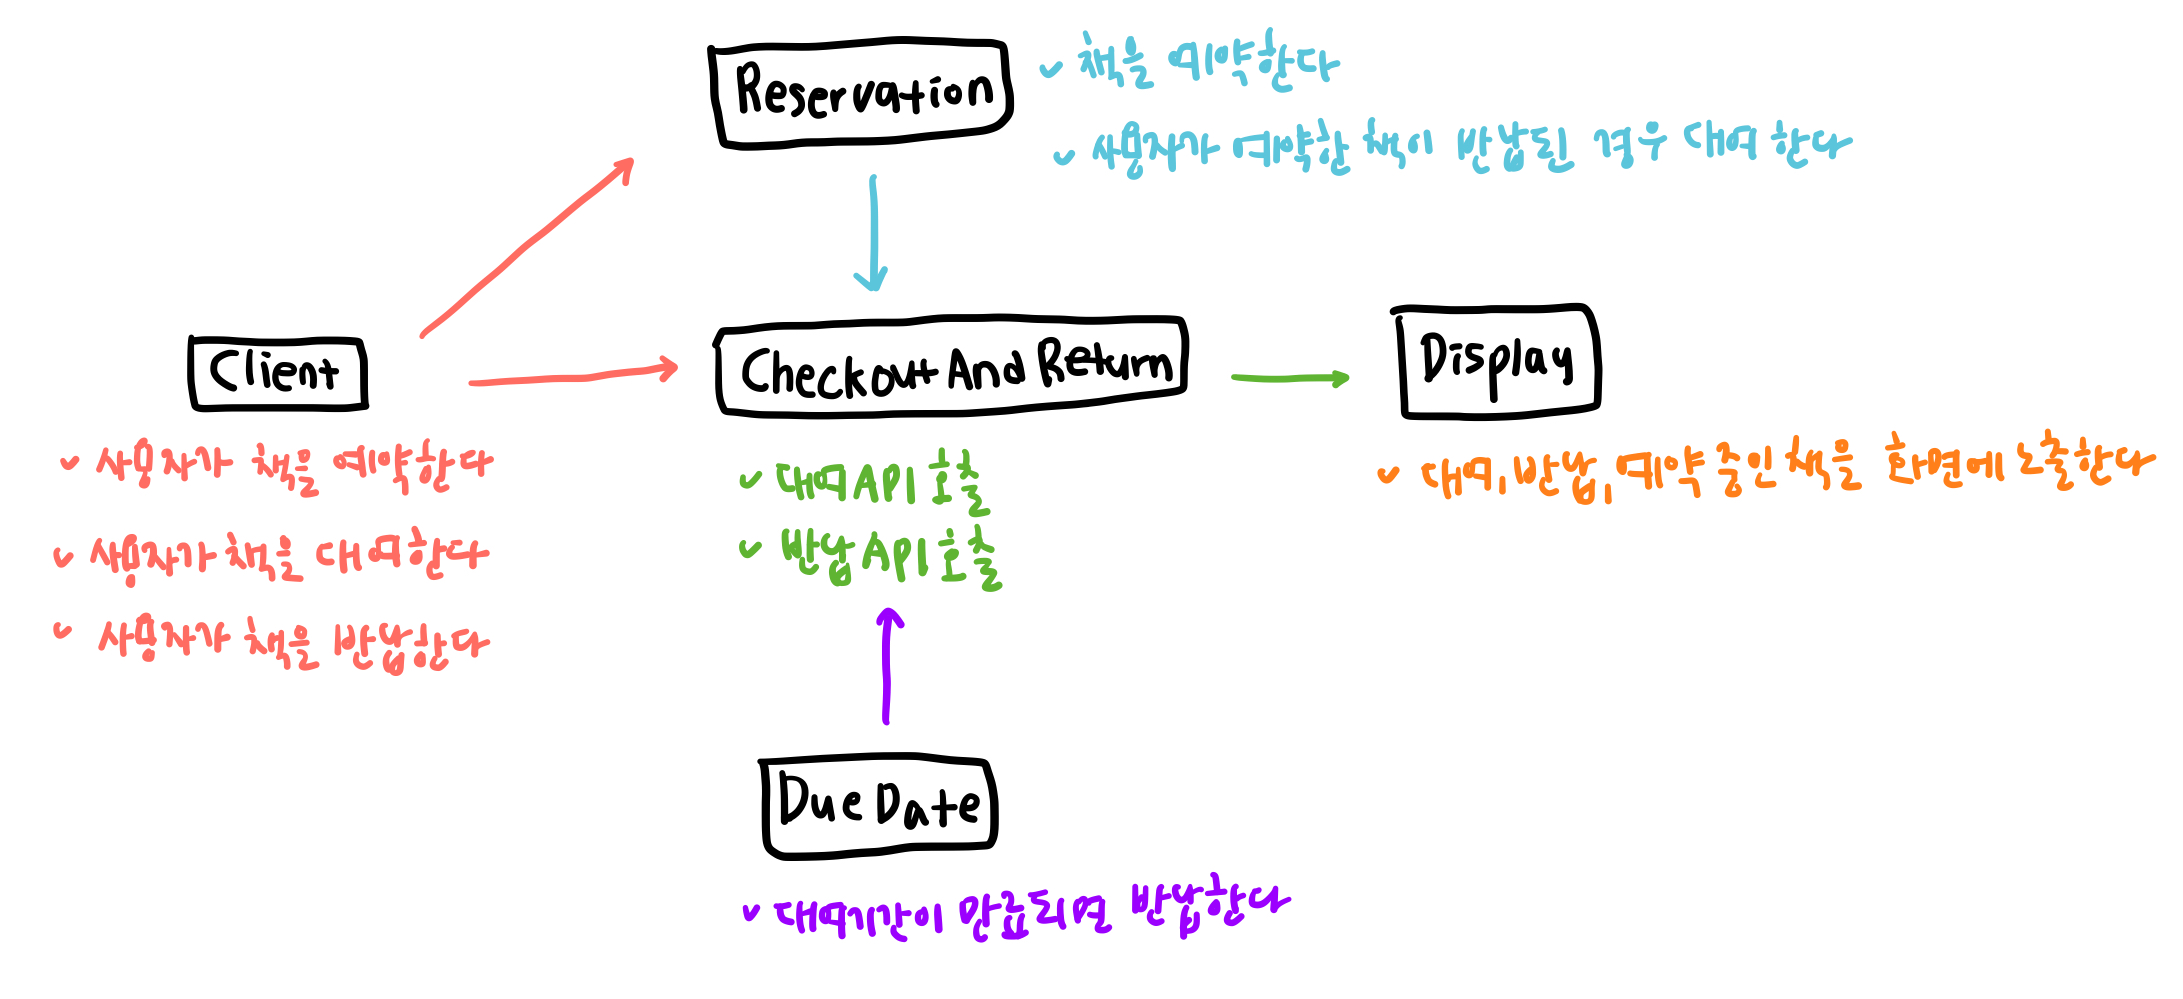 Reservation
책을 예약한다
사용자가 예약한 책이 반납된 경우 대여 한다
Client
사용자가 책을 예약한다
사용자가 책을 대여한다
사용자가 책을 반납한다
CheckoutAndReturn
대여 API 호출
반납 API 호출
Display
대여, 반납, 예약 중인 책을 화면에 노출한다
Due Date
대여기간이 만료되면 반납한다